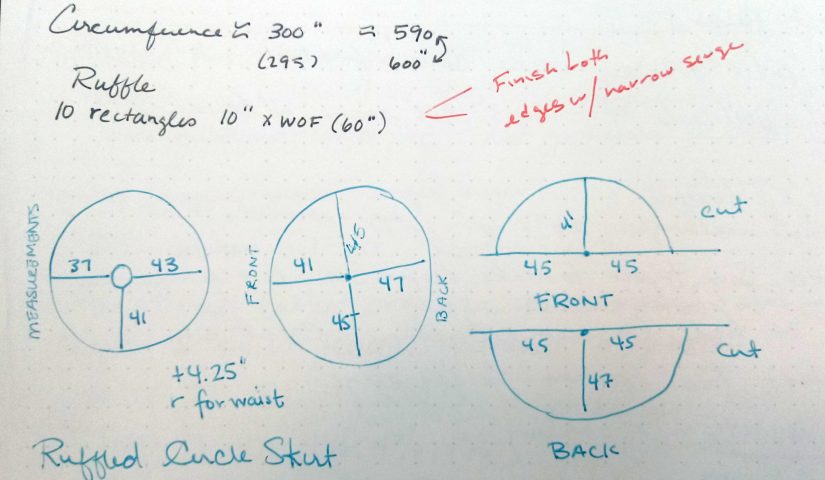 Circumference ≈ 300" ≈ 590
(295) 600"
Ruffle
10 rectangles 10" x WOF (60")
Finish both
edges w/ narrow serge
MEASUREMENTS
37 43
41
+4.25"
r for waist
FRONT
45
41
47
45
BACK
41
45 45
cut
FRONT
45 45
47
cut
BACK
Ruffled Circle Skirt